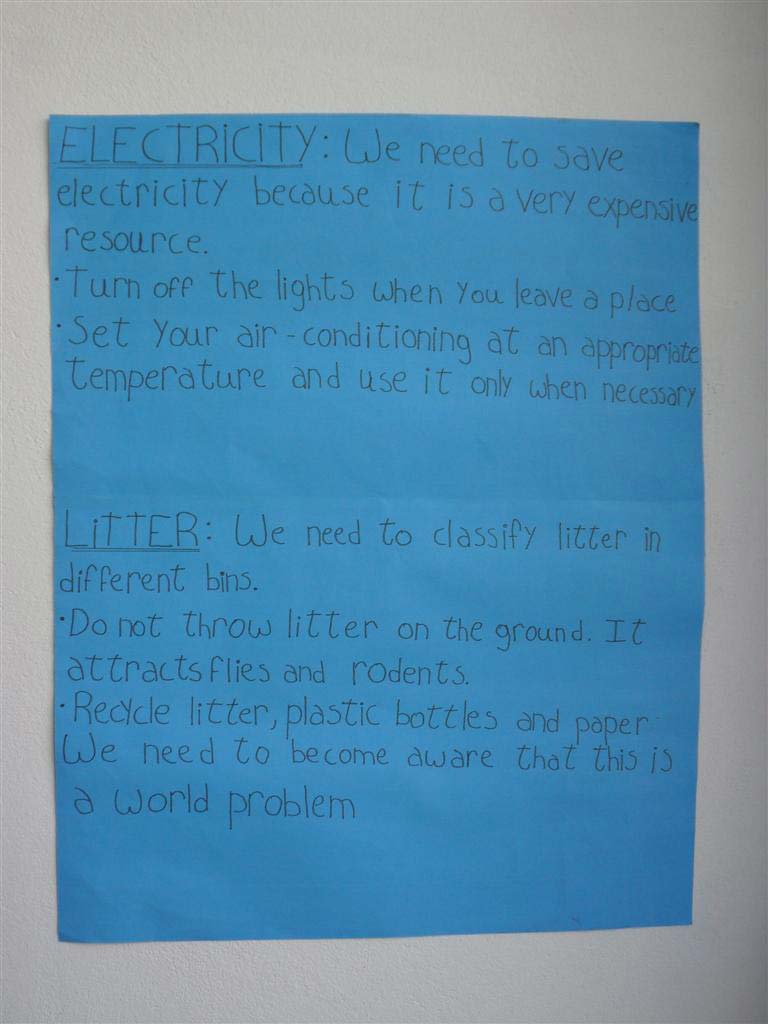 ELECTRICITY: We need to save
electricity because it is a very expensive
resource.
·Turn off the lights when you leave a place
·Set your air-conditioning at an appropriate
temperature and use it only when necessary
LITTER: We need to classify litter in
different bins.
·Do not throw litter on the ground. It
attracts flies and rodents.
·Recycle litter, plastic bottles and paper.
We need to become aware that this is
a world problem